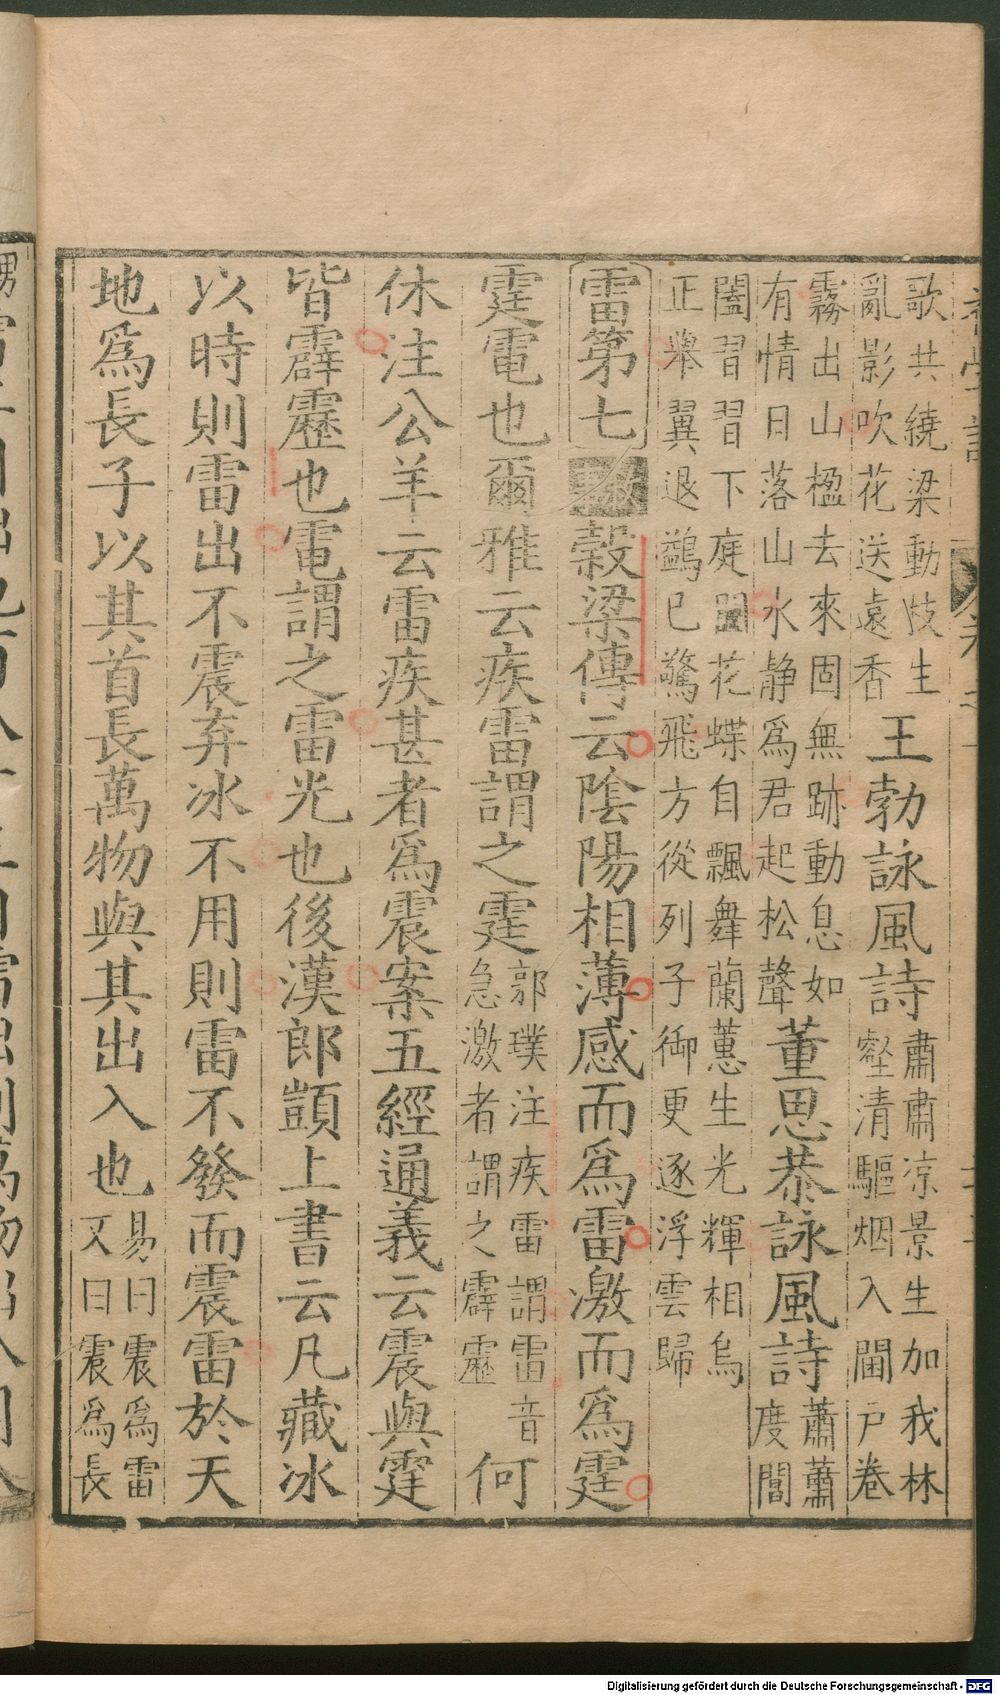 歌共繞梁動歧生
亂影吹花送遠香
王勃詠風詩
肅肅凉景生加我林
壑清驅烟入閫戶卷
霧出山楹去來固無跡動息如
有情日落山水静爲君起松聲
董思恭詠風詩
蕭蕭
度閶
闔習習下庭闈花蝶自飄舞蘭蕙生光輝相烏
正舉翼退鷁已驚飛方從列子御更逐浮雲歸
雷第七 榖梁傳云陰陽相薄感而爲雷激而爲霆
霆電也爾雅云疾雷謂之霆
郭璞注疾雷謂雷音
急激者謂之霹靂
何
休注公羊云雷疾甚者爲震案五經通義云震與霆
皆霹靂也電謂之雷光也後漢郎顗上書云凡藏冰
以時則雷出不震弃冰不用則雷不發而震雷於天
地爲長子以其首長萬物與其出入也
易曰震爲雷
又曰震爲長
Digitalisierung gefördert durch die Deutsche Forschungsgemeinschaft - DFG